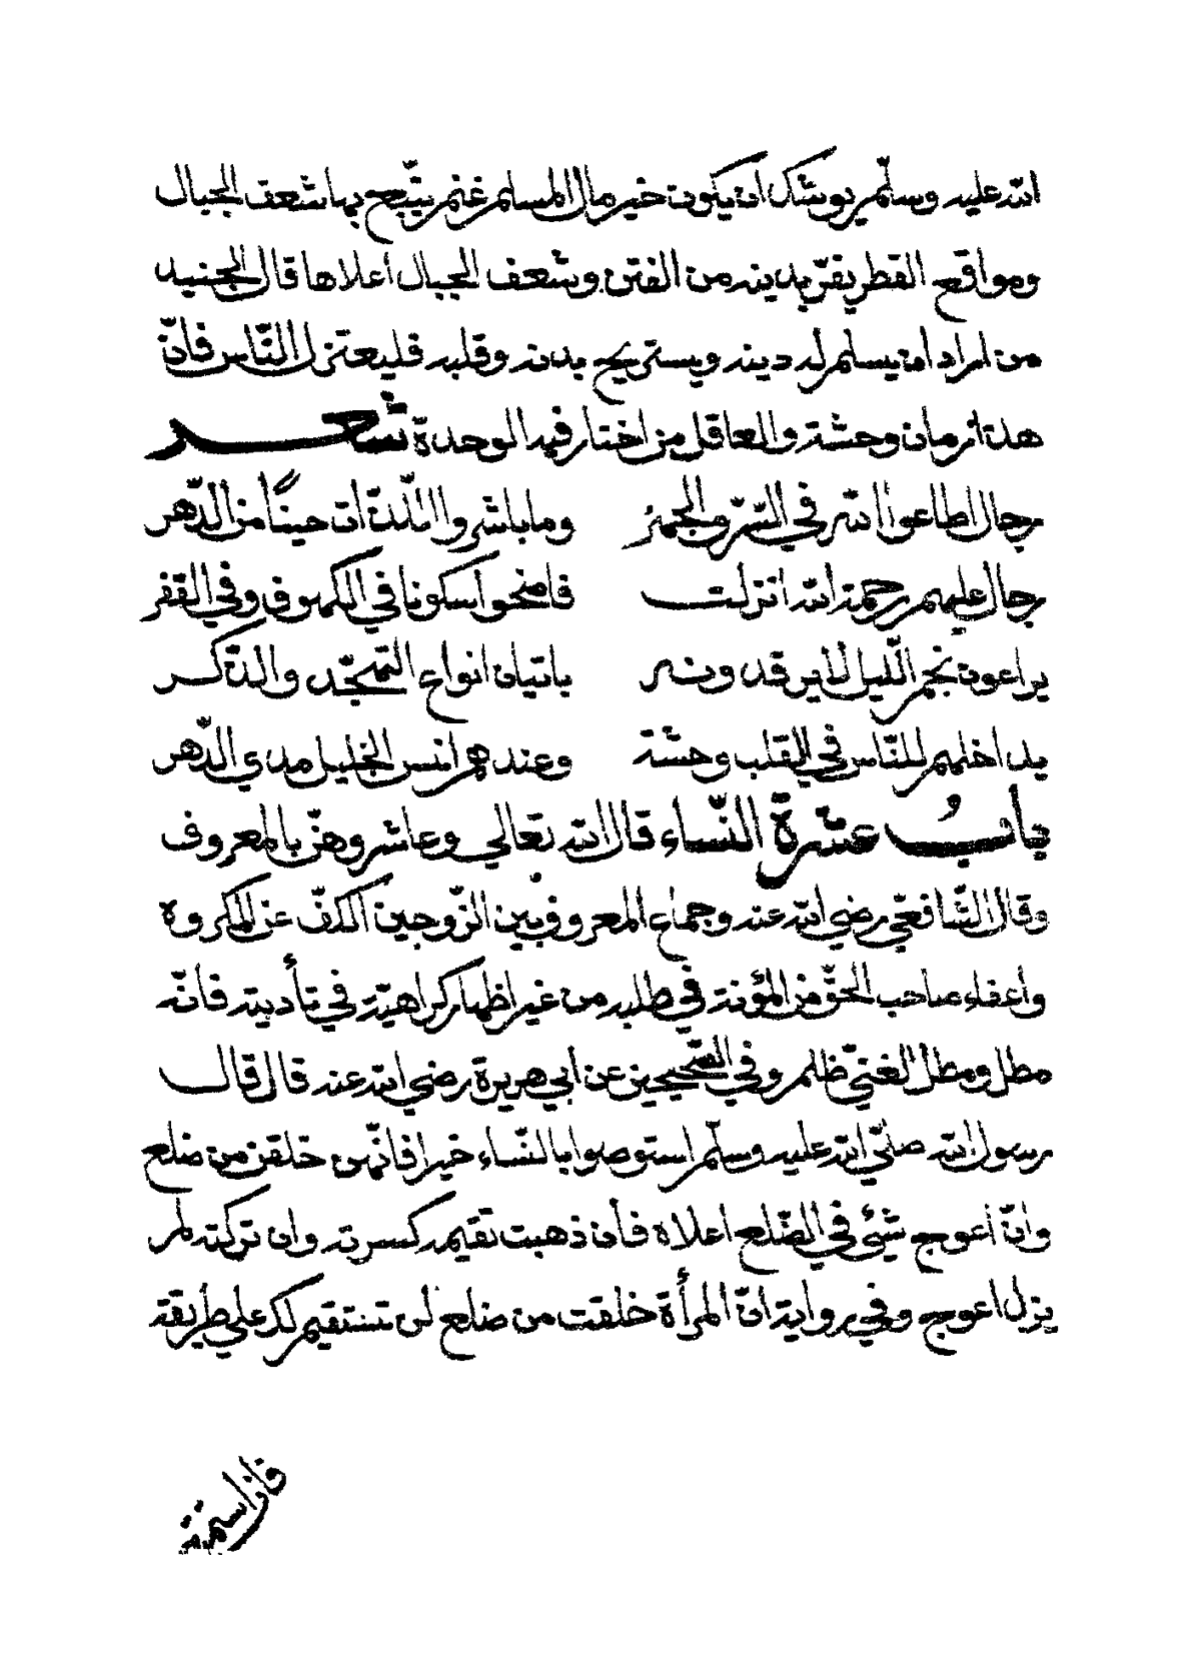 الله عليه وسلّم يوشك ان يكون خير مال المسلم غنم يتّبع بها شعف الجبال
ومواقع القطر يفرّ بدينه من الفتن وشعف الجبال أعلاها قال الجنيد
من اراد ان يسلم له دينه ويستريح بدنه وقلبه فليعتزل النّاس فانّ
هذا زمان وحشة والعاقل من اختار فيه الوحدة شعر
رجال اطاعوا الله في السّر والجهر وما باشروا اللّذّات حينًا من الدّهر
رجال عليهم رحمة الله انزلت فاضحوا سكونا في الكهوف وفي القفر
يراعون نجم اللّيل لا يرقدونه باتيان انواع التهجّد والذّكر
يداخلهم للنّاس في القلب وحشة وعندهم انس الخليل مدي الدّهر
بابُ عشرة النّساء قال الله تعالي وعاشروهنّ بالمعروف
وقال الشّافعيّ رضي الله عنه وجماع المعروف بين الزّوجين الكفّ عن المكروه
وأعفاء صاحب الحقّ من المؤنة في طلبه من غير اظهار كراهيّة في تأديته فانّه
مطل ومطل الغنيّ ظلم وفي الصّحيحين عن أبي هريرة رضي الله عنه قال قال
رسول الله صلّي الله عليه وسلّم استوصوا بالنّساء خيرا فانّهن خلقن من ضلع
وانّ أعوج شئ في الضّلع اعلاه فأن ذهبت تقيمه كسرته وان تركته لم
يزل اعوج وفي رواية انّ المرأة خلقت من ضلع لن تستقيم لك علي طريقة
فان استمتعت